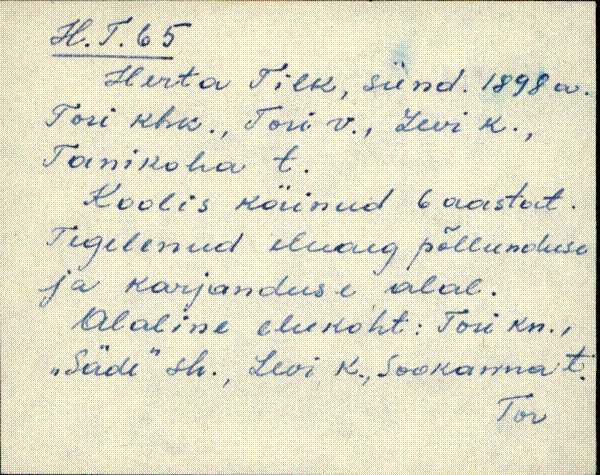 H.T.65
Herta Tilk, sünd. 1898 a.
Tori khk., Tori v., Levi k.,
Tanikoha t.
Koolis käinud 6 aastat.
Tegelenud eluaeg põllunduse
ja karjanduse alal.
Alaline elukoht: Tori kn.,
„Säde" sh., Levi k., Sookanna t.
Tor